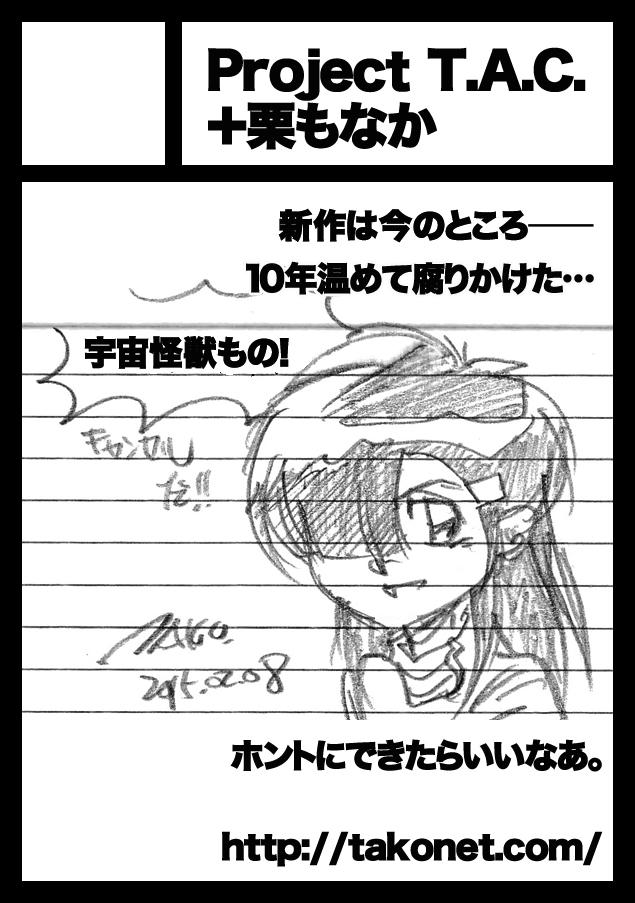 Project T.A.C.
+栗もなか
新作は今のところ――
10年温めて腐りかけた…
宇宙怪獣もの!
キャンセル
だ!!
TAKO.
2015.02.08
ホントにできたらいいなあ。
http://takonet.com/